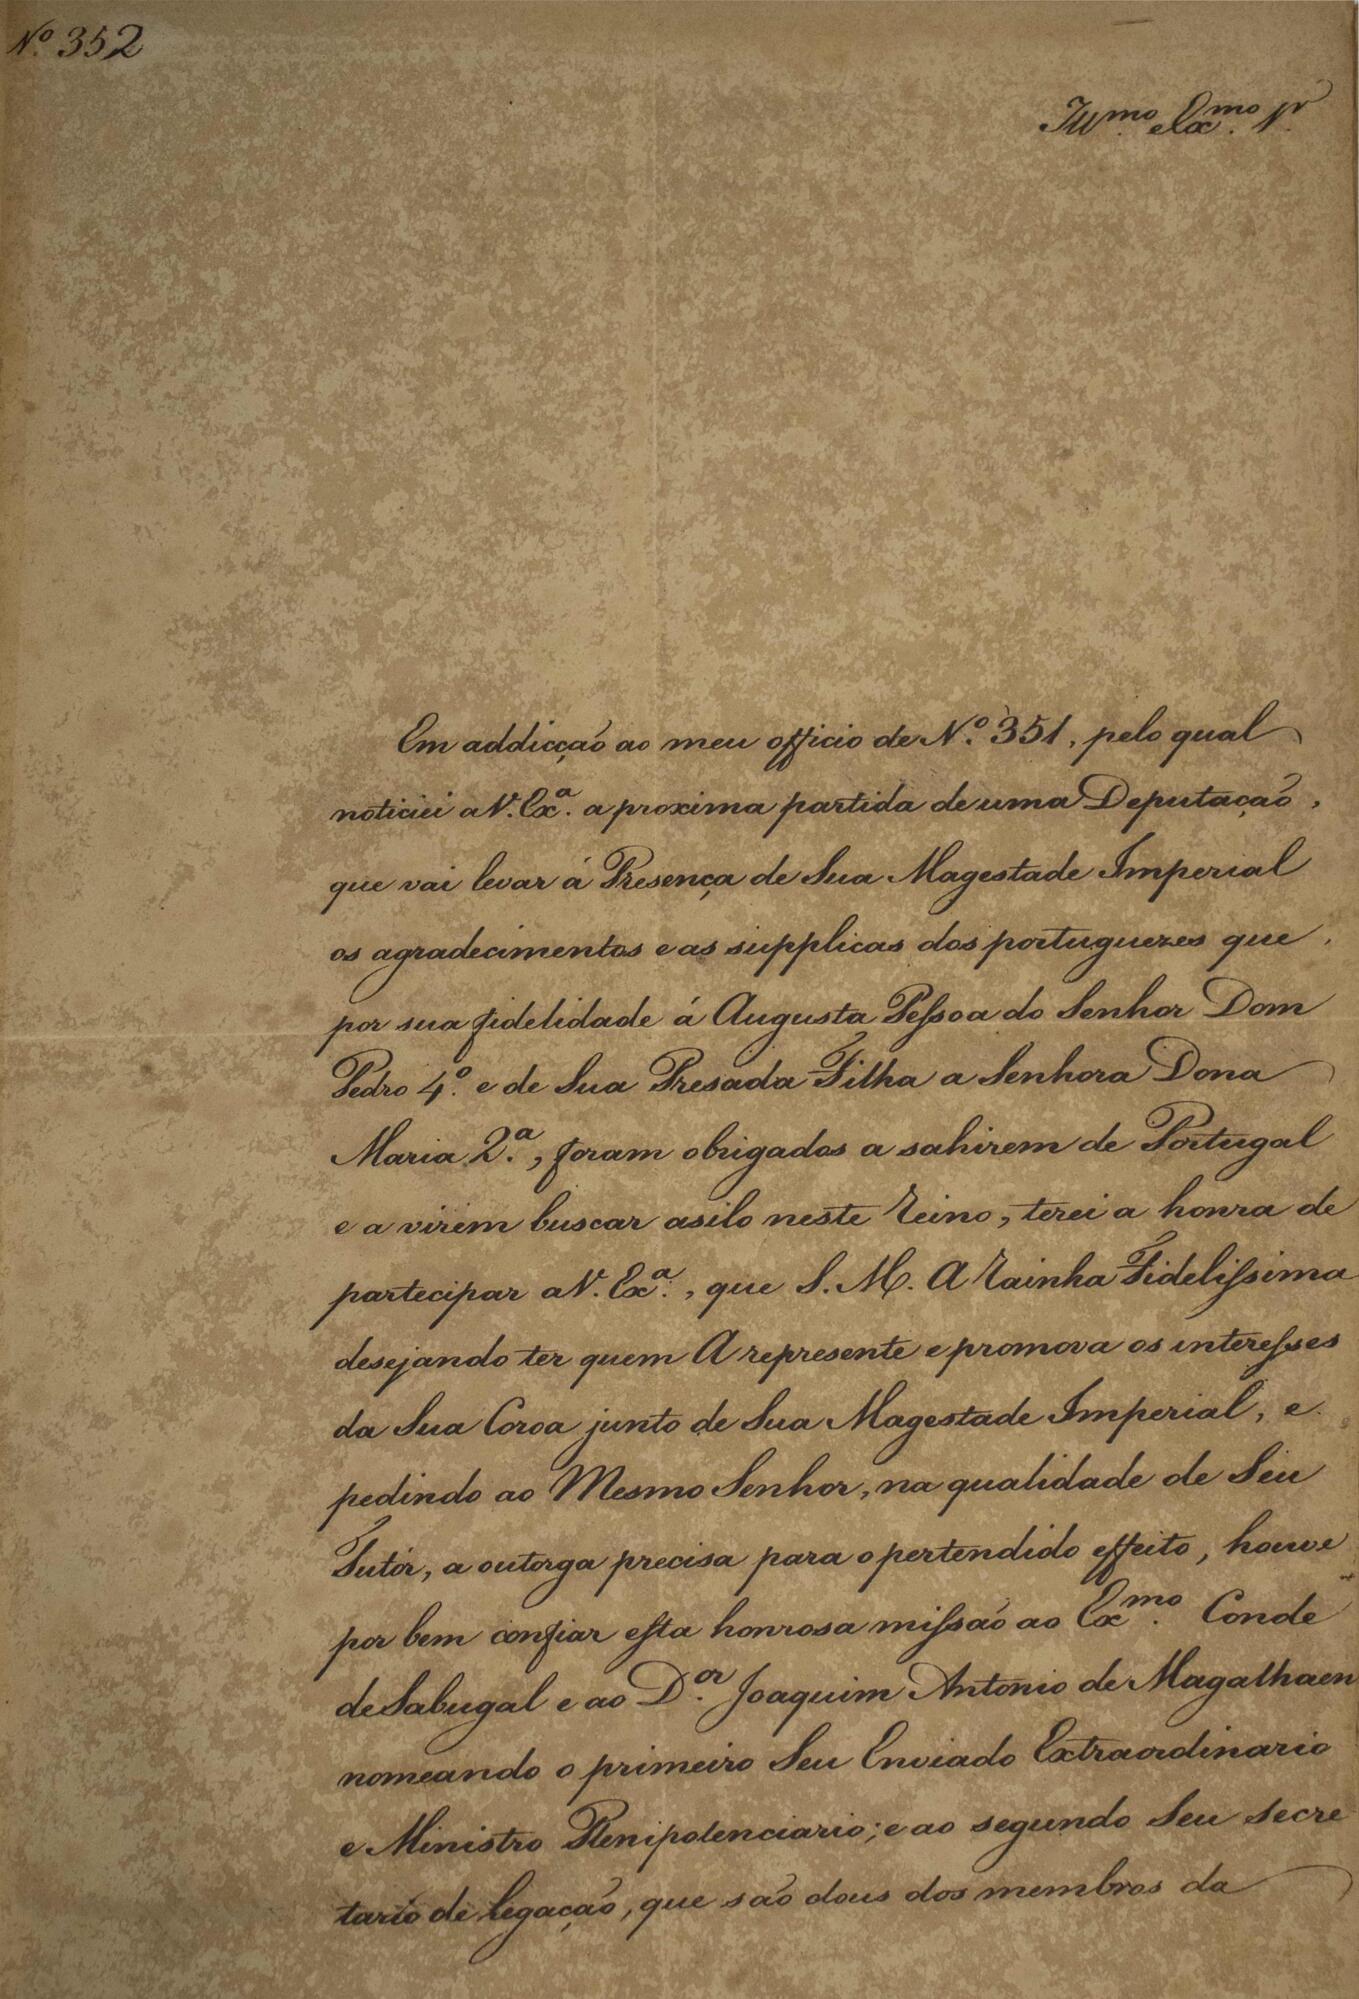 Nº 352
Illmo. e Exmo. Sr.
Em addicção ao meu officio de Nº. 351, pelo qual
noticiei a V. Exª. a proxima partida de uma Deputação,
que vai levar á Presença de Sua Magestade Imperial
os agradecimentos e as supplicas dos portuguezes que
por sua fidelidade á Augusta Pessoa do Senhor Dom
Pedro 4º. e de Sua Presada Filha a Senhora Dona
Maria 2ª., foram obrigados a sahirem de Portugal
e a virem buscar asilo neste reino, terei a honra de
partecipar a V. Exª., que S. M. A Rainha Fidelissima
desejando ter quem A represente e promova os interesses
da Sua Coroa junto de Sua Magestade Imperial, e
pedindo ao Mesmo Senhor, na qualidade de Seu
Tutor, a outorga precisa para o pertendido effeito, houve
por bem confiar esta honrosa missão ao Exmo. Conde
de Sabugal e ao Dor. Joaquim Antonio de Magalhaen
nomeando o primeiro Seu Enviado Extraordinario
e Ministro Plenipotenciario; e ao segundo Seu secre
tario de legação, que são dous dos membros da